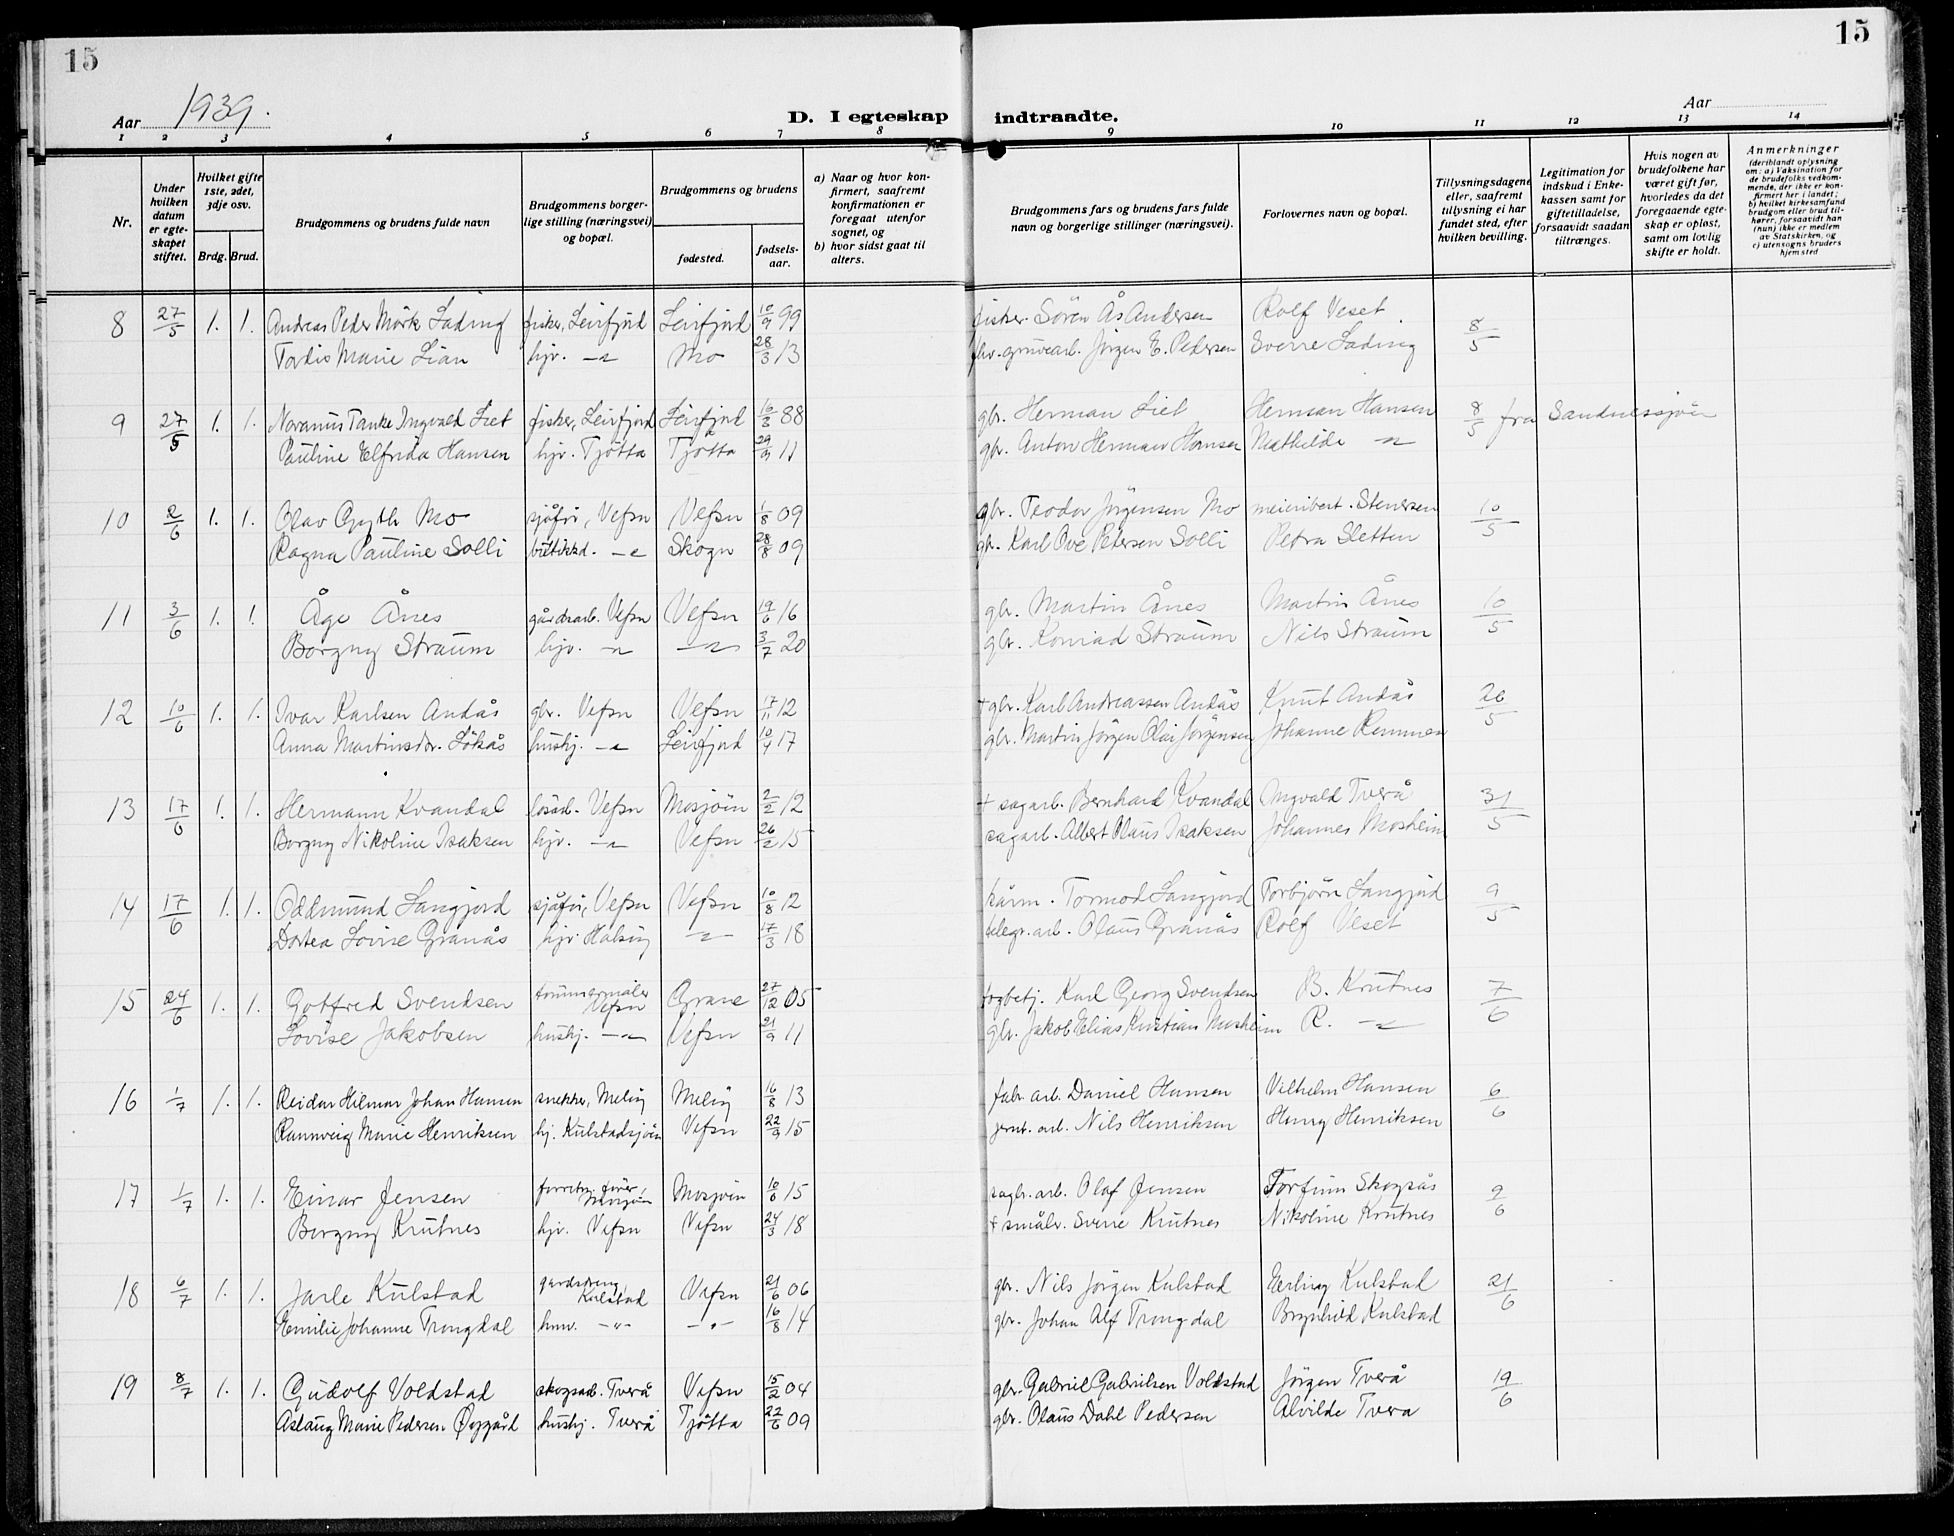 15
15
Aar 1939.
D. I egteskap indtraadte.
Aar
1 2 3 4 5 6 7 8 9 10 11 12 13 14
Nr.
Under hvilken datum er egte-skapet stiftet.
Hvilket gifte 1ste, 2det, 3dje osv.
Brdg. Brud.
Brudgommens og brudens fulde navn
Brudgommens borger-lige stilling (næringsvei) og bopæl.
Brudgommens og brudens
fødested.
fødsels-aar.
a) Naar og hvor kon-firmert, saafremt konfirmationen er foregaat utenfor sognet, og
b) hvor sidst gaat til alters.
Brudgommens fars og brudens fars fulde navn og borgerlige stillinger (næringsvei).
Forlovernes navn og bopæl.
Tillysningsdagene eller, saafremt tillysning ei har fundet sted, efter hvilken bevilling.
Legitimation for indskud i Enke-kassen samt for giftetilladelse, forsaavidt saadan tiltrænges.
Hvis nogen av brudefolkene har været gift før, hvorledes da det foregaaende egte-skap er opløst, samt om lovlig skifte er holdt.
Anmerkninger
(deriblandt oplysning om: a) Vaksination for de brudefolks vedkom-mende, der ikke er kon-firmert her i landet; b) hvilket kirkesamfund brudgom eller brud til-hører, forsaavidt han (hun) ikke er medlem av Statskirken, og c) utensogns bruders hjemsted
8 27/5 1. 1. Andreas Peder Mørk Lading fisker, Leirfjord Leirfjord 10/9 99 fisker. Sören Ås Andersen Rolf Veset 8/5
Tordis Marie Lian hjv. -"- Mo 28/3 13 gruvearb. Jörgen E. Pedersen Sverre Lading
9 27/5 1. 1. Tanke Ingvald Liet fisker, Leirfjord Leirfjord 16/3 88 gbr. Herman Liet Herman Hansen 8/5 fra Sandnessjøen
Pauline Elfrida Hansen hjv. Tjötta Tjötta 29/9 11 gbr. Anton Herman Hansen Mathilde -"-
10 2/6 1. 1. Olav Gryth Mo sjåför, Vefsn Vefsn 1/8 09 gbr. Teodor Jörgensen Mo meieribest. Stenersen 10/5
Ragna Pauline Solli -"- Skogn 28/8 09 gbr. Karl Ove Petersen Solli Petra Sletten
11 3/6 1. 1. Åge Ånes gårdsarb. Vefsn Vefsn 19/6 16 gbr. Martin Ånes Martin Ånes 10/5
Borgny Straum hjv. -"- -"- 3/7 20 gbr. Konrad Straum Nils Straum
12 10/6 1. 1. Ivar Karlsen Andås gbr. Vefsn Vefsn 17/11 12 + gbr. Karl Andreassen Andås Knut Andås 26/5
Anna Martinsdr. Lökås hushj. -"- Leirfjord 10/4 17 gbr. Martin Jörgen Olai Jörgensen Johanne Remmen
13 17/6 1. 1. Hermann Kvandal Vefsn Mosjöen 2/2 12 + sagarb. Bernhard Kvandal Ingvald Tverå 31/5
Borgny Nikoline Isaksen hjv. -"- Vefsn 26/2 15 sagarb. Albert Olaus Isaksen Johannes Mosheim
14 17/6 1. 1. Oddmund Langjord sjåför, Vefsn Vefsn 10/8 12 Tormod Langjord Torbjörn Langjord 9/5
Dortea Lovise Granås hjv. Halsöy -"- 17/3 18 telegr. arb. Olaus Granås Rolf Veset
15 24/6 1. 1. Gotfred Svendsen tömmermåler Vefsn Grane 27/12 05 Karl Georg Svendsen B. Krutnes 7/6
Lovise Jakobsen hushj. -"- Vefsn 21/9 11 gbr. Jakob Elias Kristian Mosheim R. -"-
16 1/7 1. 1. Reidar Hilmar Johan Hansen snekker, Meløy Meløy 16/8 13 fabr. arb. Daniel Hansen Vilhelm Hansen 6/6
Rannveig Marie Henriksen hj. Kulstadsjöen Vefsn 22/9 15 jernb. arb. Nils Henriksen Henry Henriksen
17 1/7 1. 1. Einar Jensen forretn. förer, Mosjöen Mosjöen 10/6 15 sagbr. arb. Olaf Jensen Torfinn Skogsås 9/6
Borgny Krutnes hjv. Vefsn Vefsn 24/3 18 + småbr. Sverre Krutnes Nikoline Krutnes
18 6/7 1. 1. Jarle Kulstad gardsdreng Kulstad Vefsn 21/6 06 gbr. Nils Jörgen Kulstad Erling Kulstad 21/6
Emilie Johanne Trongdal -"- -"- 16/8 14 gbr. Johan Alf Trongdal Brynhild Kulstad
19 8/7 1. 1. Gudolf Voldstad skogsarb. Tverå Vefsn 15/2 04 gbr. Gabriel Gabrielsen Voldstad Jörgen Tverå 19/6
Aslaug Marie Pedersen Øygård hushj. Tverå Tjötta 22/6 09 gbr. Olaus Dahl Pedersen Alvilde Tverå